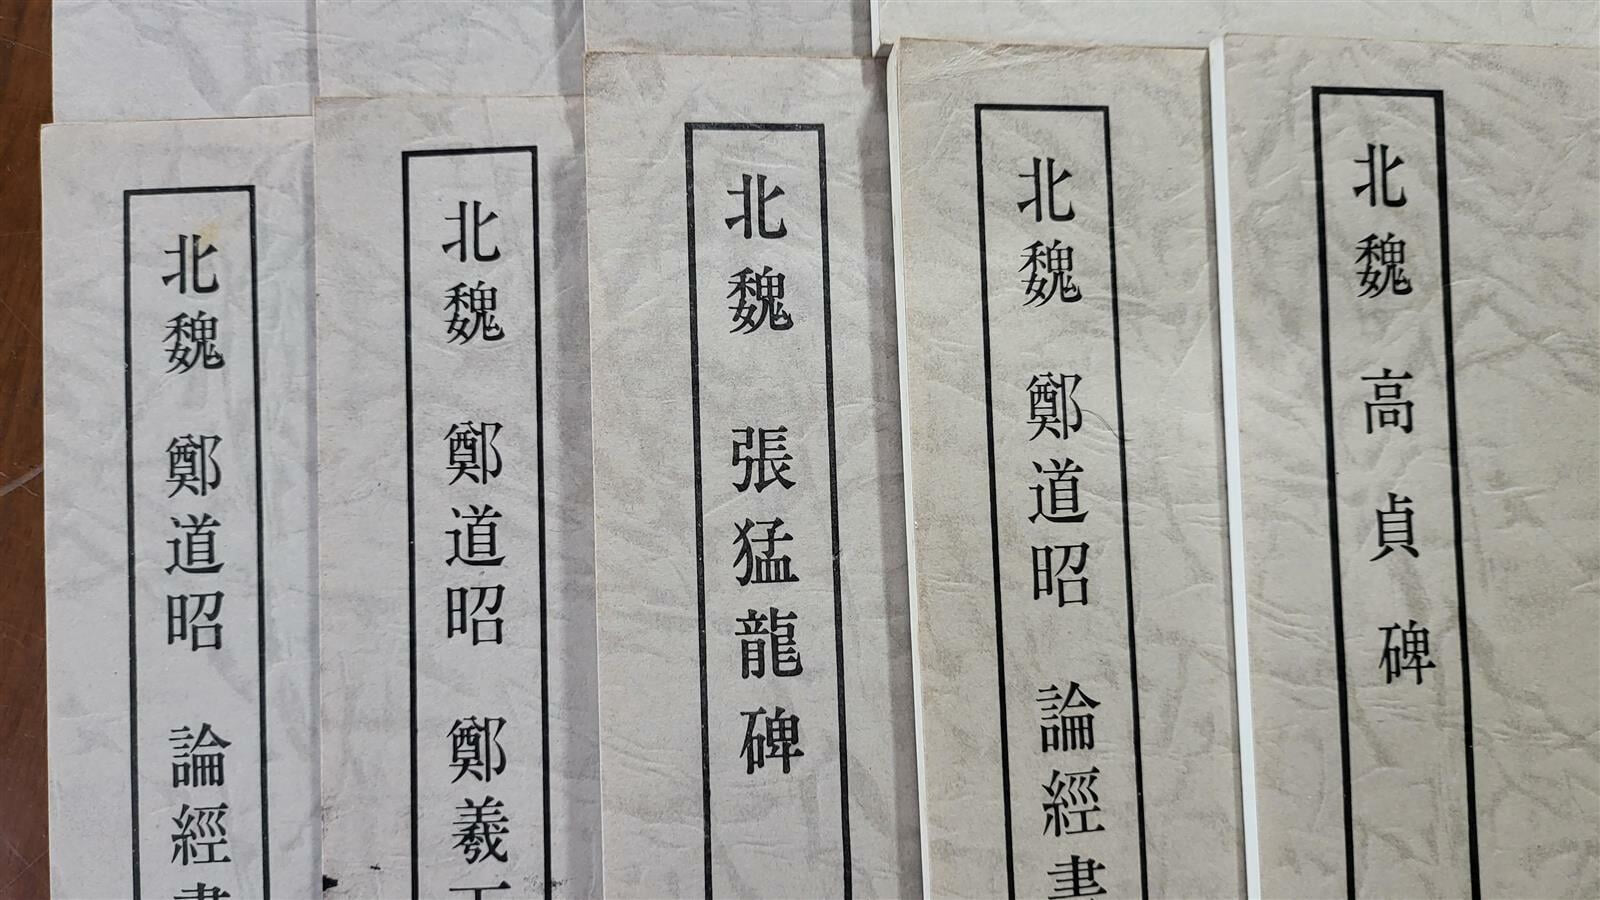 北魏 鄭道昭 論經書
北魏 鄭道昭 鄭羲下
北魏 張猛龍碑
北魏 鄭道昭 論經書
北魏 高貞碑